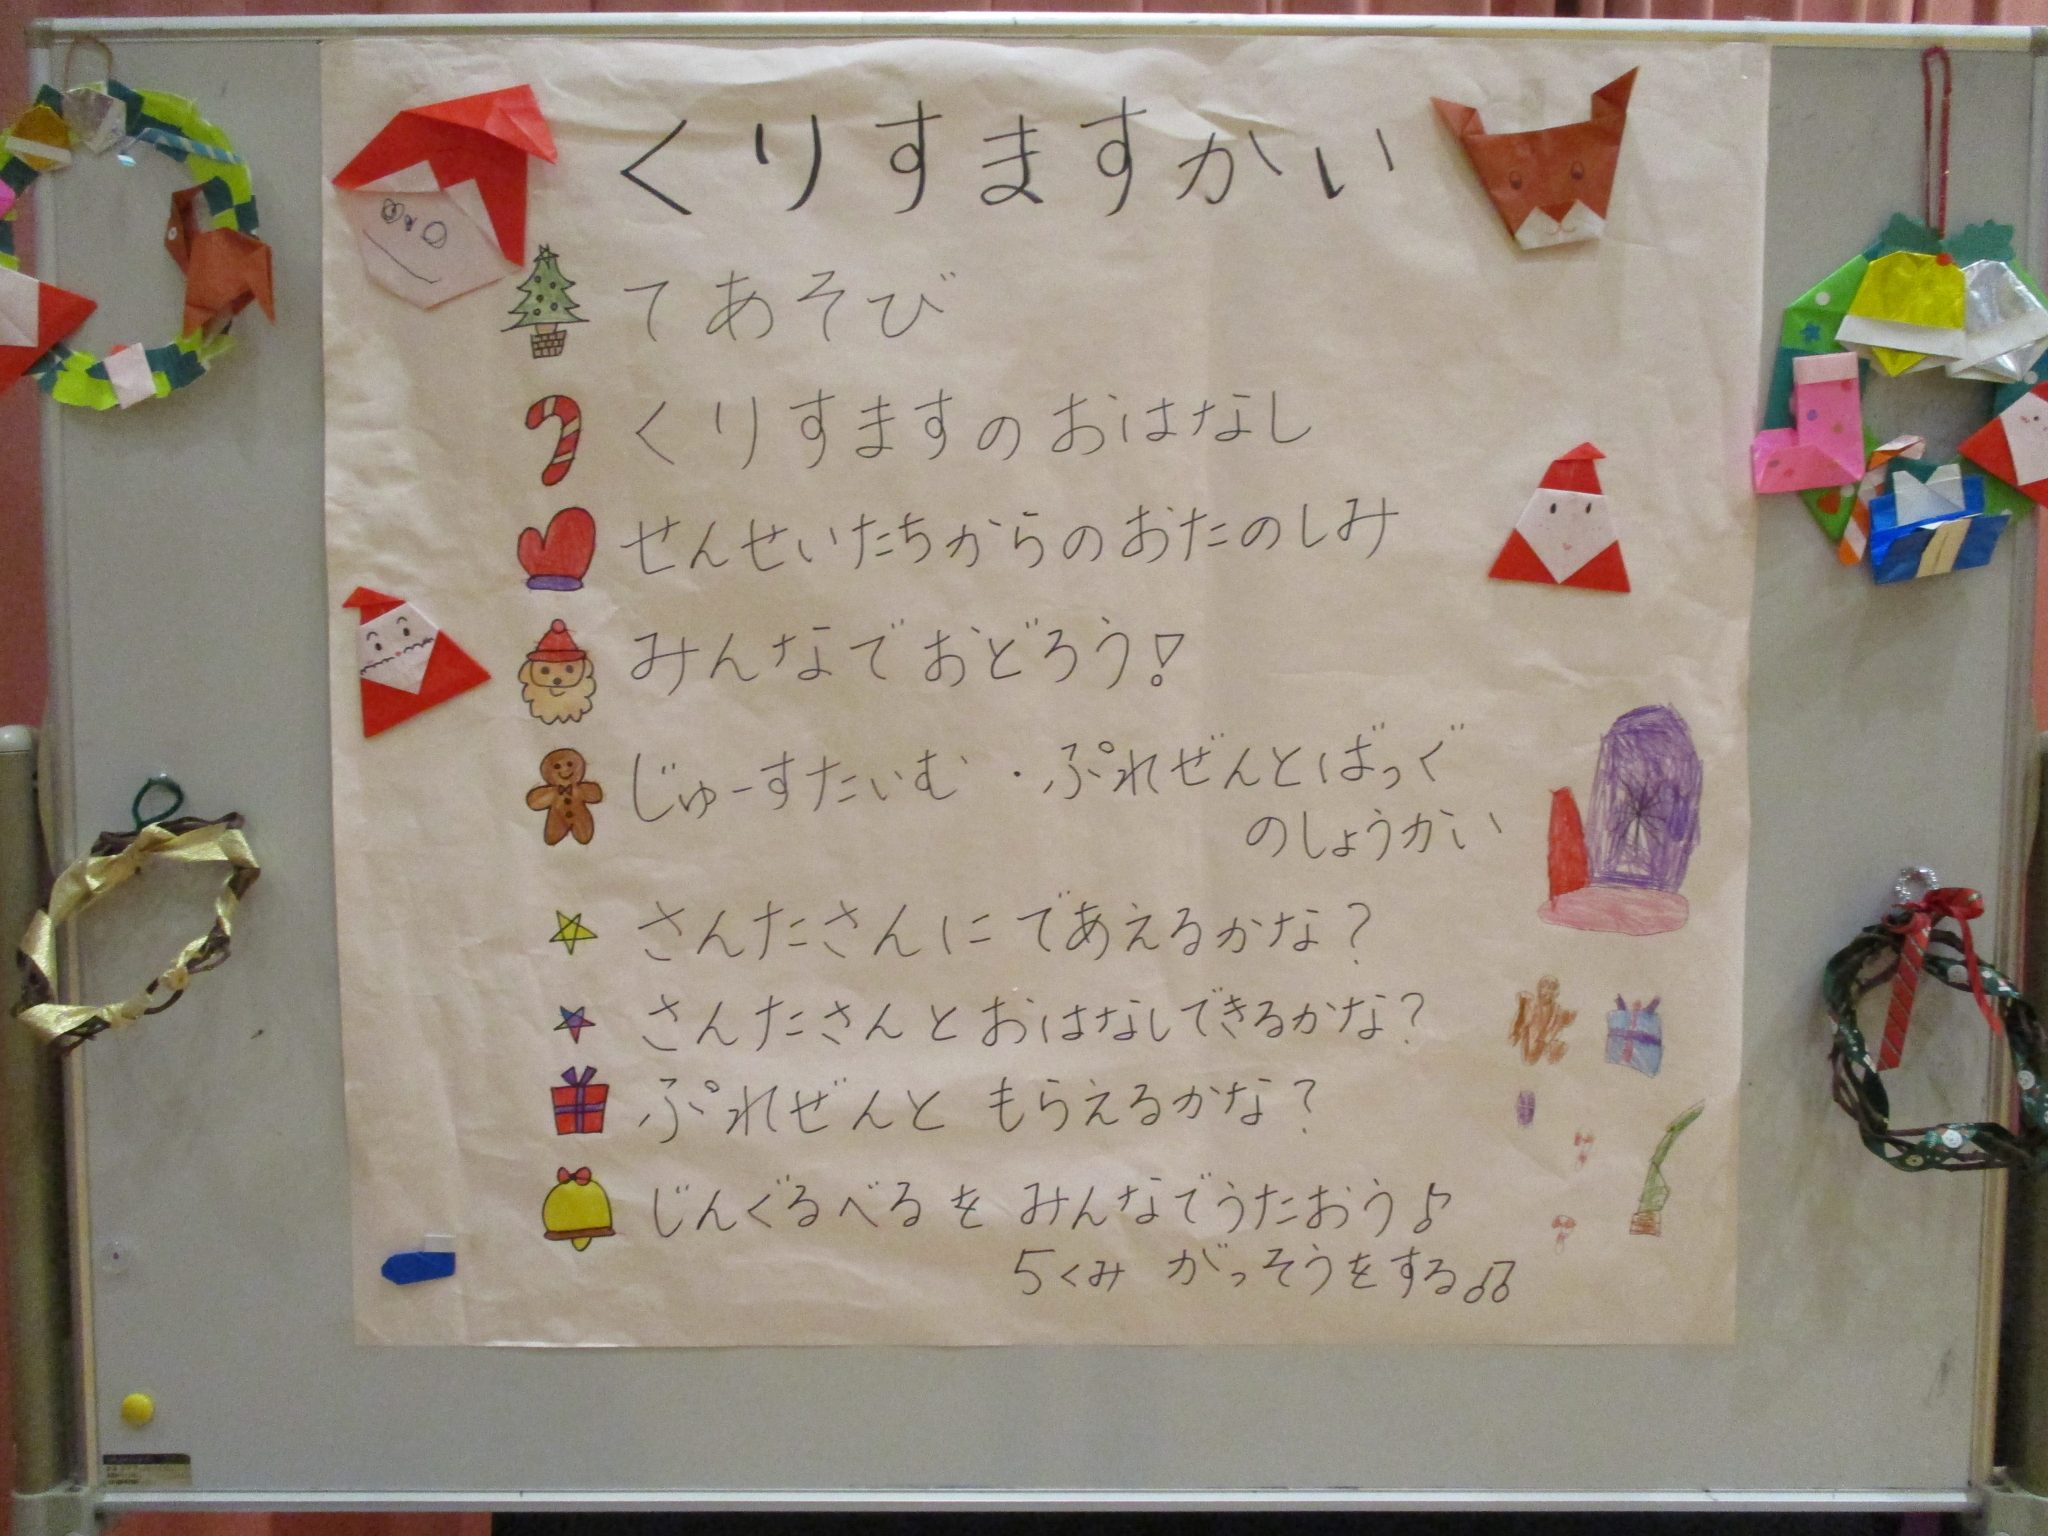 くりすますかい
てあそび
くりすますのおはなし
せんせいたちからのおたのしみ
みんなでおどろう!
じゅーすたいむ・ぷれぜんとばっぐ
のしょうかい
さんたさんにであえるかな?
さんたさんとおはなしできるかな?
ぷれぜんと もらえるかな?
じんぐるべるを みんなでうたおう♪
5くみ がっそうをする♫